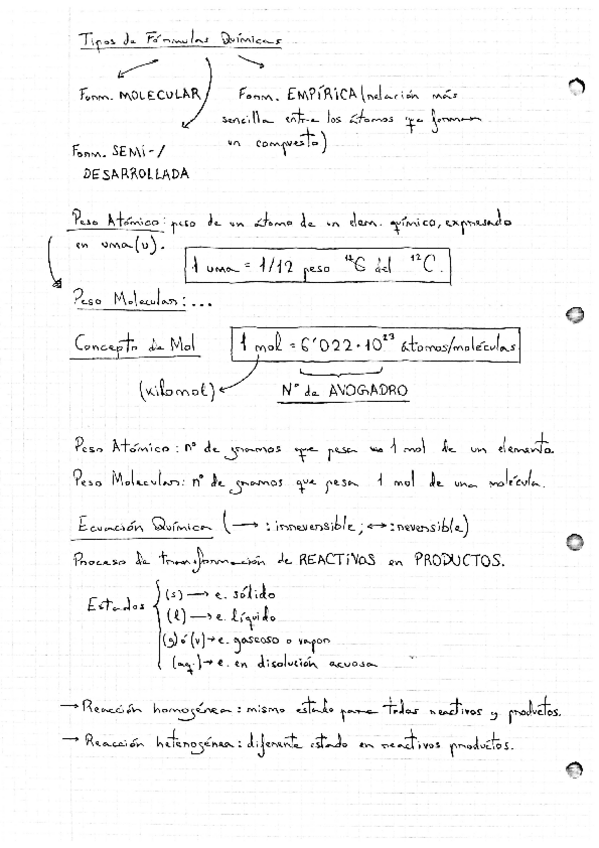 Tipos de Fórmulas Químicas
Form. MOLECULAR
Form. EMPÍRICA (relación más
sencilla entre los átomos que forman
un compuesto)
Form. SEMI-/
DESARROLLADA
Peso Atómico: peso de un átomo de un elem. químico, expresado
en uma (u).
1 uma = 1/12 peso del ¹²C.
Peso Molecular: ...
Concepto de Mol
1 mol = 6'022·10²³ átomos/moléculas
(kilomol)
Nº de AVOGADRO
Peso Atómico: nº de gramos que pesa 1 mol de un elemento.
Peso Molecular: nº de gramos que pesa 1 mol de una molécula.
Ecuación Química (→: irreversible; ↔: reversible)
Proceso de transformación de REACTIVOS en PRODUCTOS.
Estados
(s) → e. sólido
(l) → e. líquido
(g) ó (v) → e. gascoso o vapor
(aq.) → e. en disolución acuosa
→ Reacción homogénea: mismo estado para todos reactivos y productos.
→ Reacción heterogénea: diferente estado en reactivos productos.